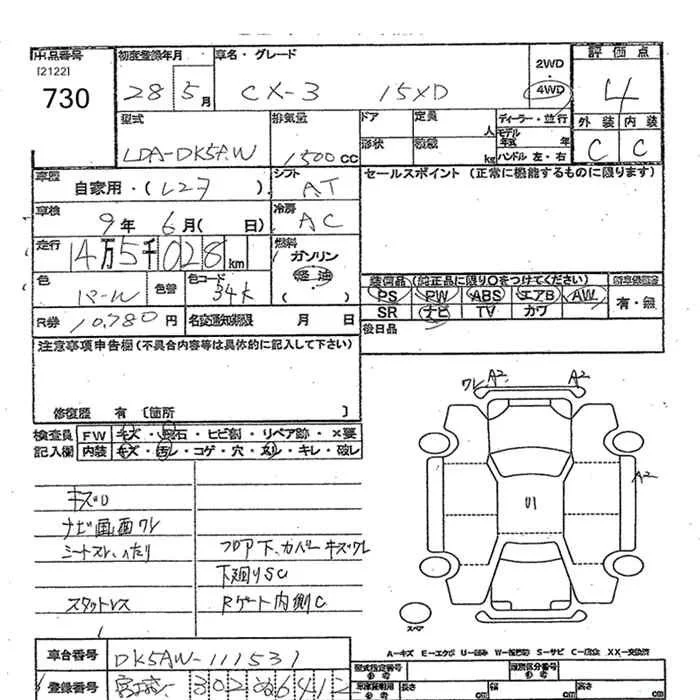 出品番号 初度登録年月 車名・グレード 2WD 評価点
[2122] 730 28 5月 CX-3 15XD 4WD 4
型式 排気量 ドア 定員 人 ディーラー・並行 外装 内装
LDA-DK5AW 1500CC 形状 kg モデル年式 年 ハンドル 左・右 C C
車歴 自家用・(レンタ) シフト AT セールスポイント (正常に機能するものに限ります)
車検 9年 6月( 日) 冷房 AC
走行 14万5千028km 燃料 ガソリン 軽油 ( )
色 パール 色替 色コード 34K 装備品 (純正品に限り○をつけてください)
PS PW ABS エアB AW 有・無
R券 10,780円 名変通知期限 月 日 SR ナビ TV カワ
注意事項申告欄(不具合内容等は具体的に記入して下さい) 後日品
修復歴 有 [箇所 ]
ワレ A2 A2
検査員 FW キズ・飛石・ヒビ割・リペア跡・×要
記入欄 内装 キズ・汚レ・コゲ・穴・スレ・キレ・破レ
A2
U1
キズU
ナビ画面ワレ
シートスレ、へたり フロア下、カバーキズワレ
下廻りSC
スタットレス Rゲート内側C
スペア
A-キズ E-エクボ U-凹み W-補修跡 S-サビ C-腐食 XX-交換済
車台番号 DK5AW-111531
登録番号 302 6412
型式指定番号 類別区分番号
長さ cm 幅 cm 高さ cm